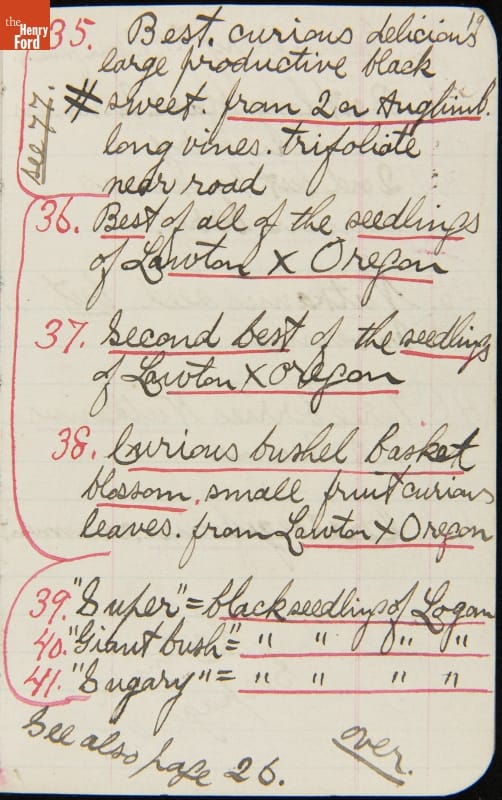 the
Henry
Ford
19
35. Best. curious delicious
large productive black
see 77. # sweet. from 2 or Auglimb.
long vines. trifoliate
near road
36. Best of all of the seedlings
of Lawton X Oregon
37. Second best of the seedlings
of Lawton X Oregon
38. Curious bushel basket
blossom. small fruit curious
leaves. from Lawton X Oregon
39. "Super" = black seedlings of Logan
40. "Giant bush" = " " " "
41. "Sugary" = " " " "
See also page 26.
over.